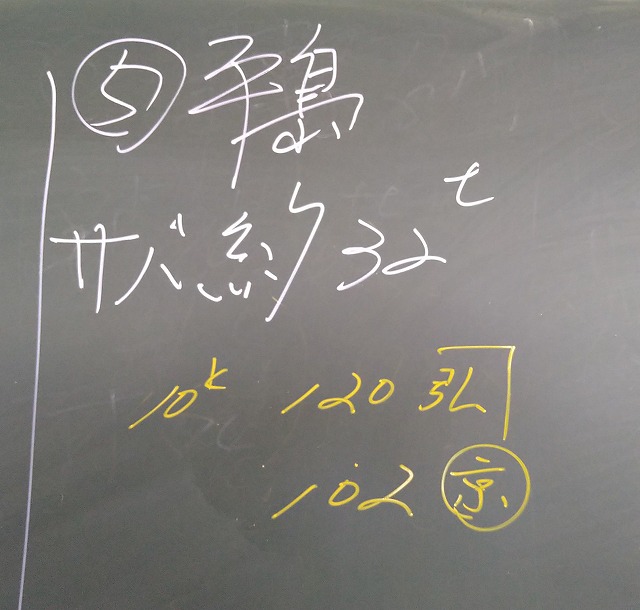 ⑤ 平島
サバ約32t
10k 120 弘
102 京